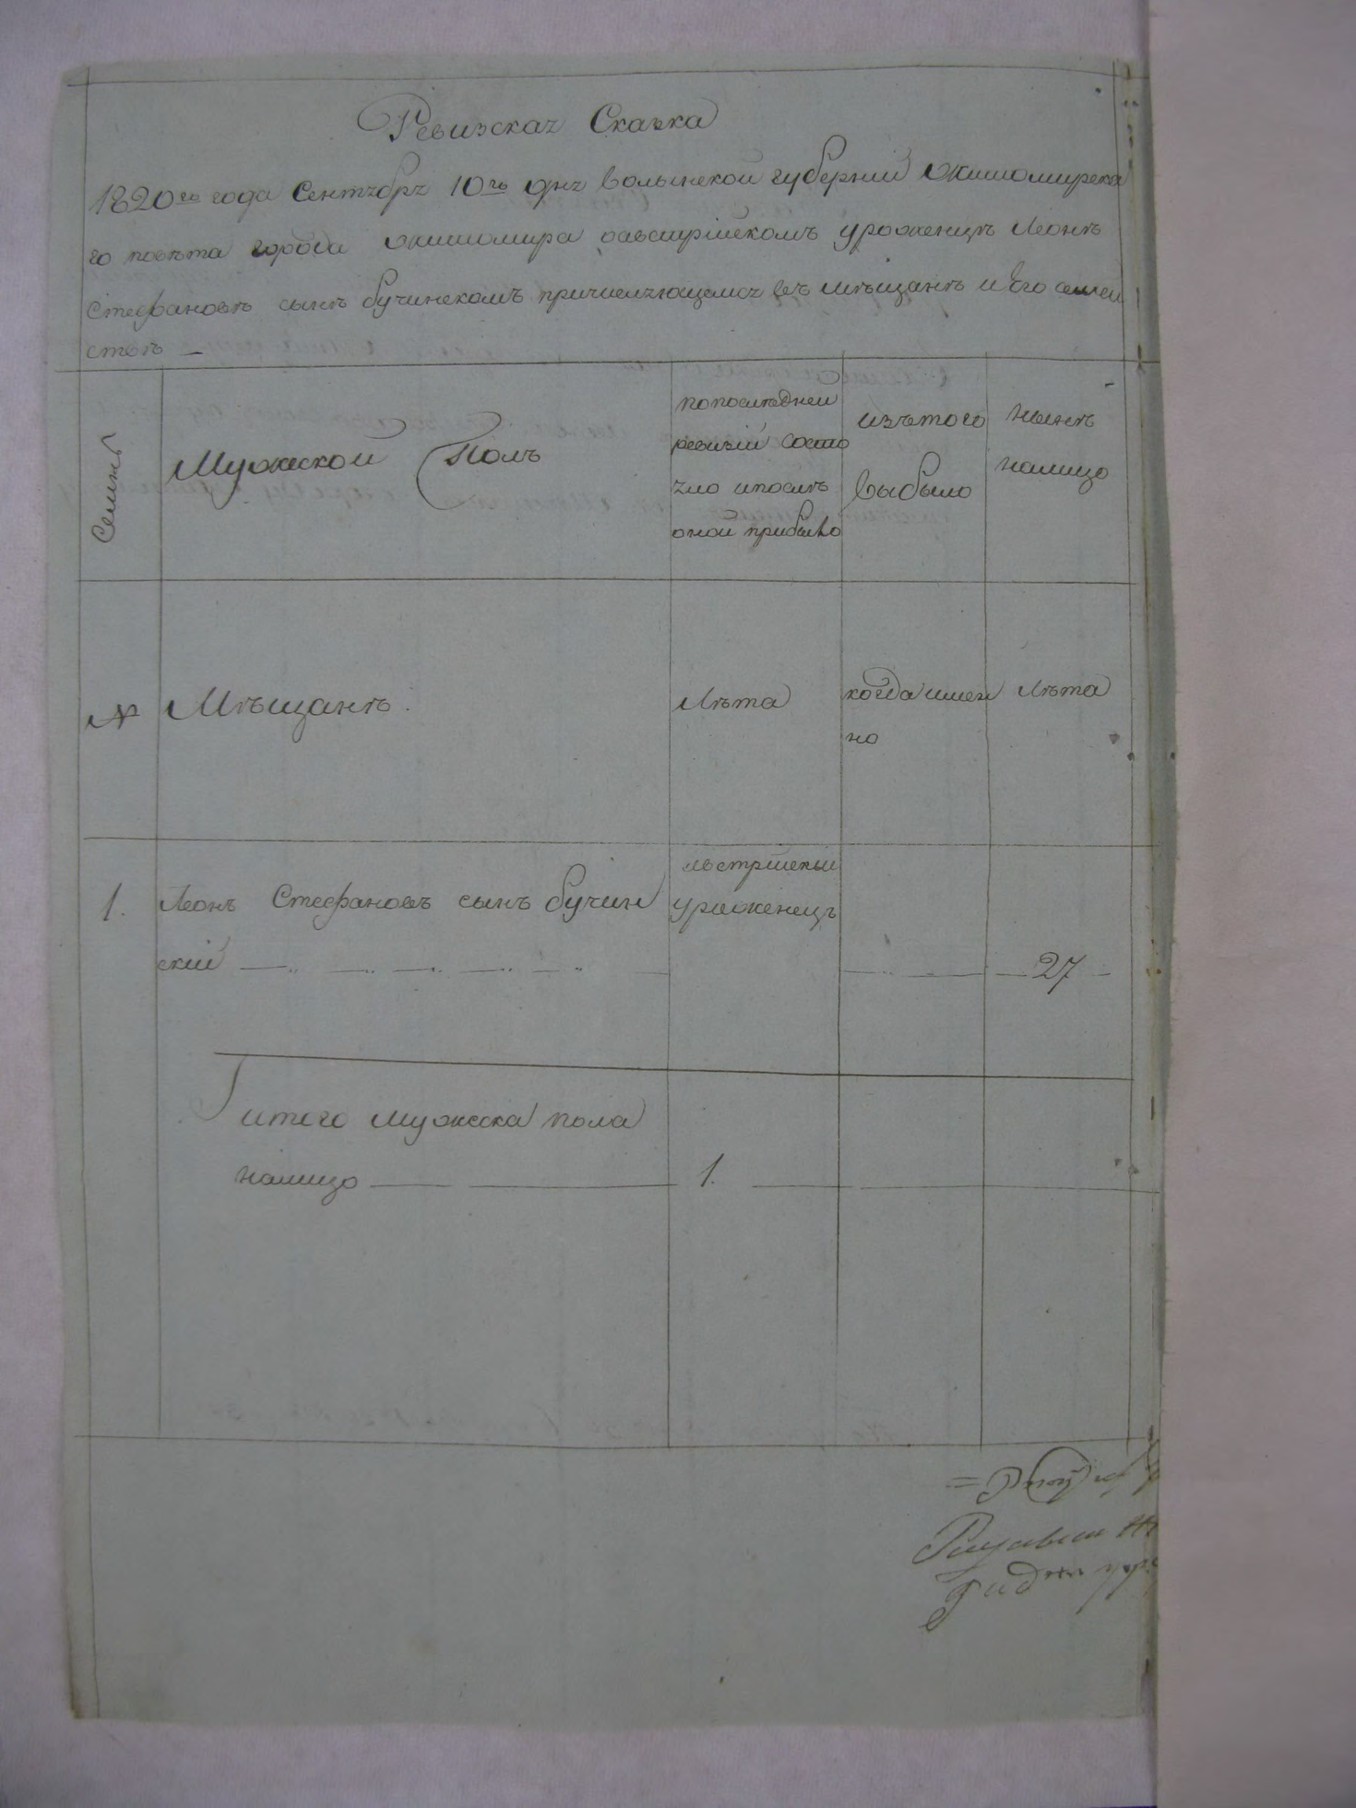 Ревизская Сказка
1820го года сентября 10го дня волынской губернии житомирска
го повѣта города житомира оавстрійскомъ уроженцѣ Леонѣ
Стефановѣ сынѣ бучинскомъ причисляющемся въ мѣщанѣ и Его семей
ствѣ
Семьѣ
Мужеской Полъ
попослѣдней
ревизіи состо
яло ипослѣ
оной прибыло
изътого
выбыло
нынѣ
налицо
№
Мѣщанѣ.
Лѣта
когда имен
но
Лѣта
1.
Леонъ Стефановъ сынъ бучин
ский
австрійскій
уроженецъ
27
итого мужеска пола
налицо 1.